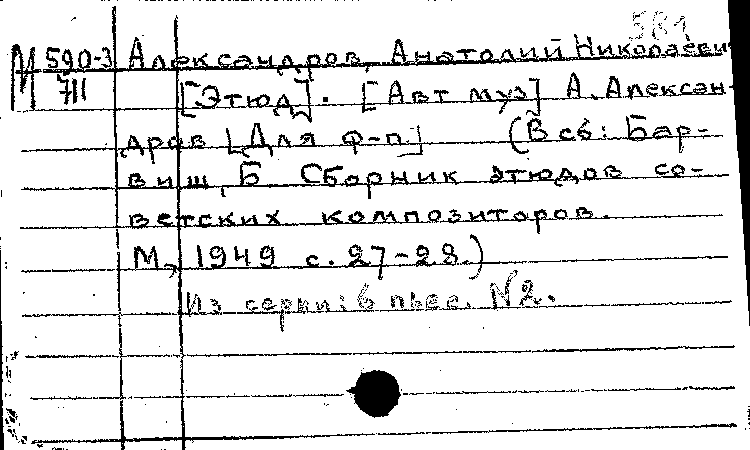 581
М 590-3 Александров, Анатолий Николаеви
711 [Этюд]. [Авт муз] А. Алексан-
дров [Для ф-п.] (В сб: Бар-
виш, Б Сборник этюдов со-
ветских композиторов.
М, 1949 с. 27-28.)
Из серии: 6 пьес. N2.